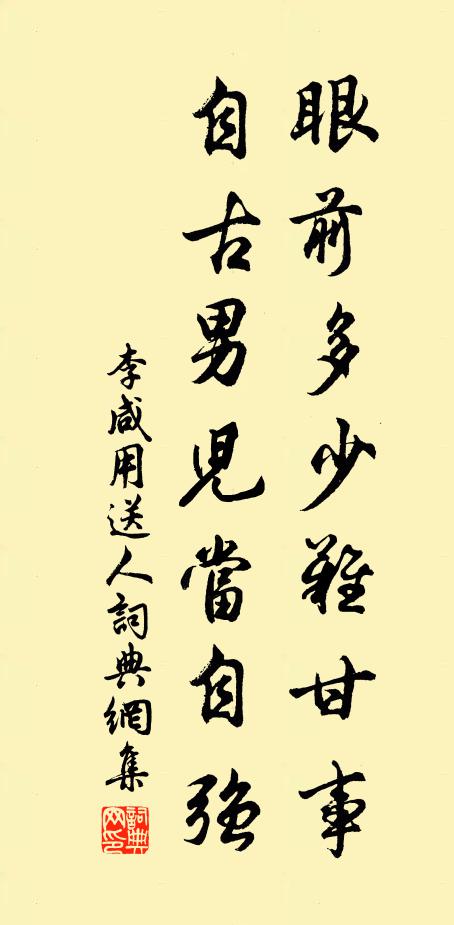 眼前多少難甘事
自古男兒當自強
李咸用送人詞典網集
詞典網印